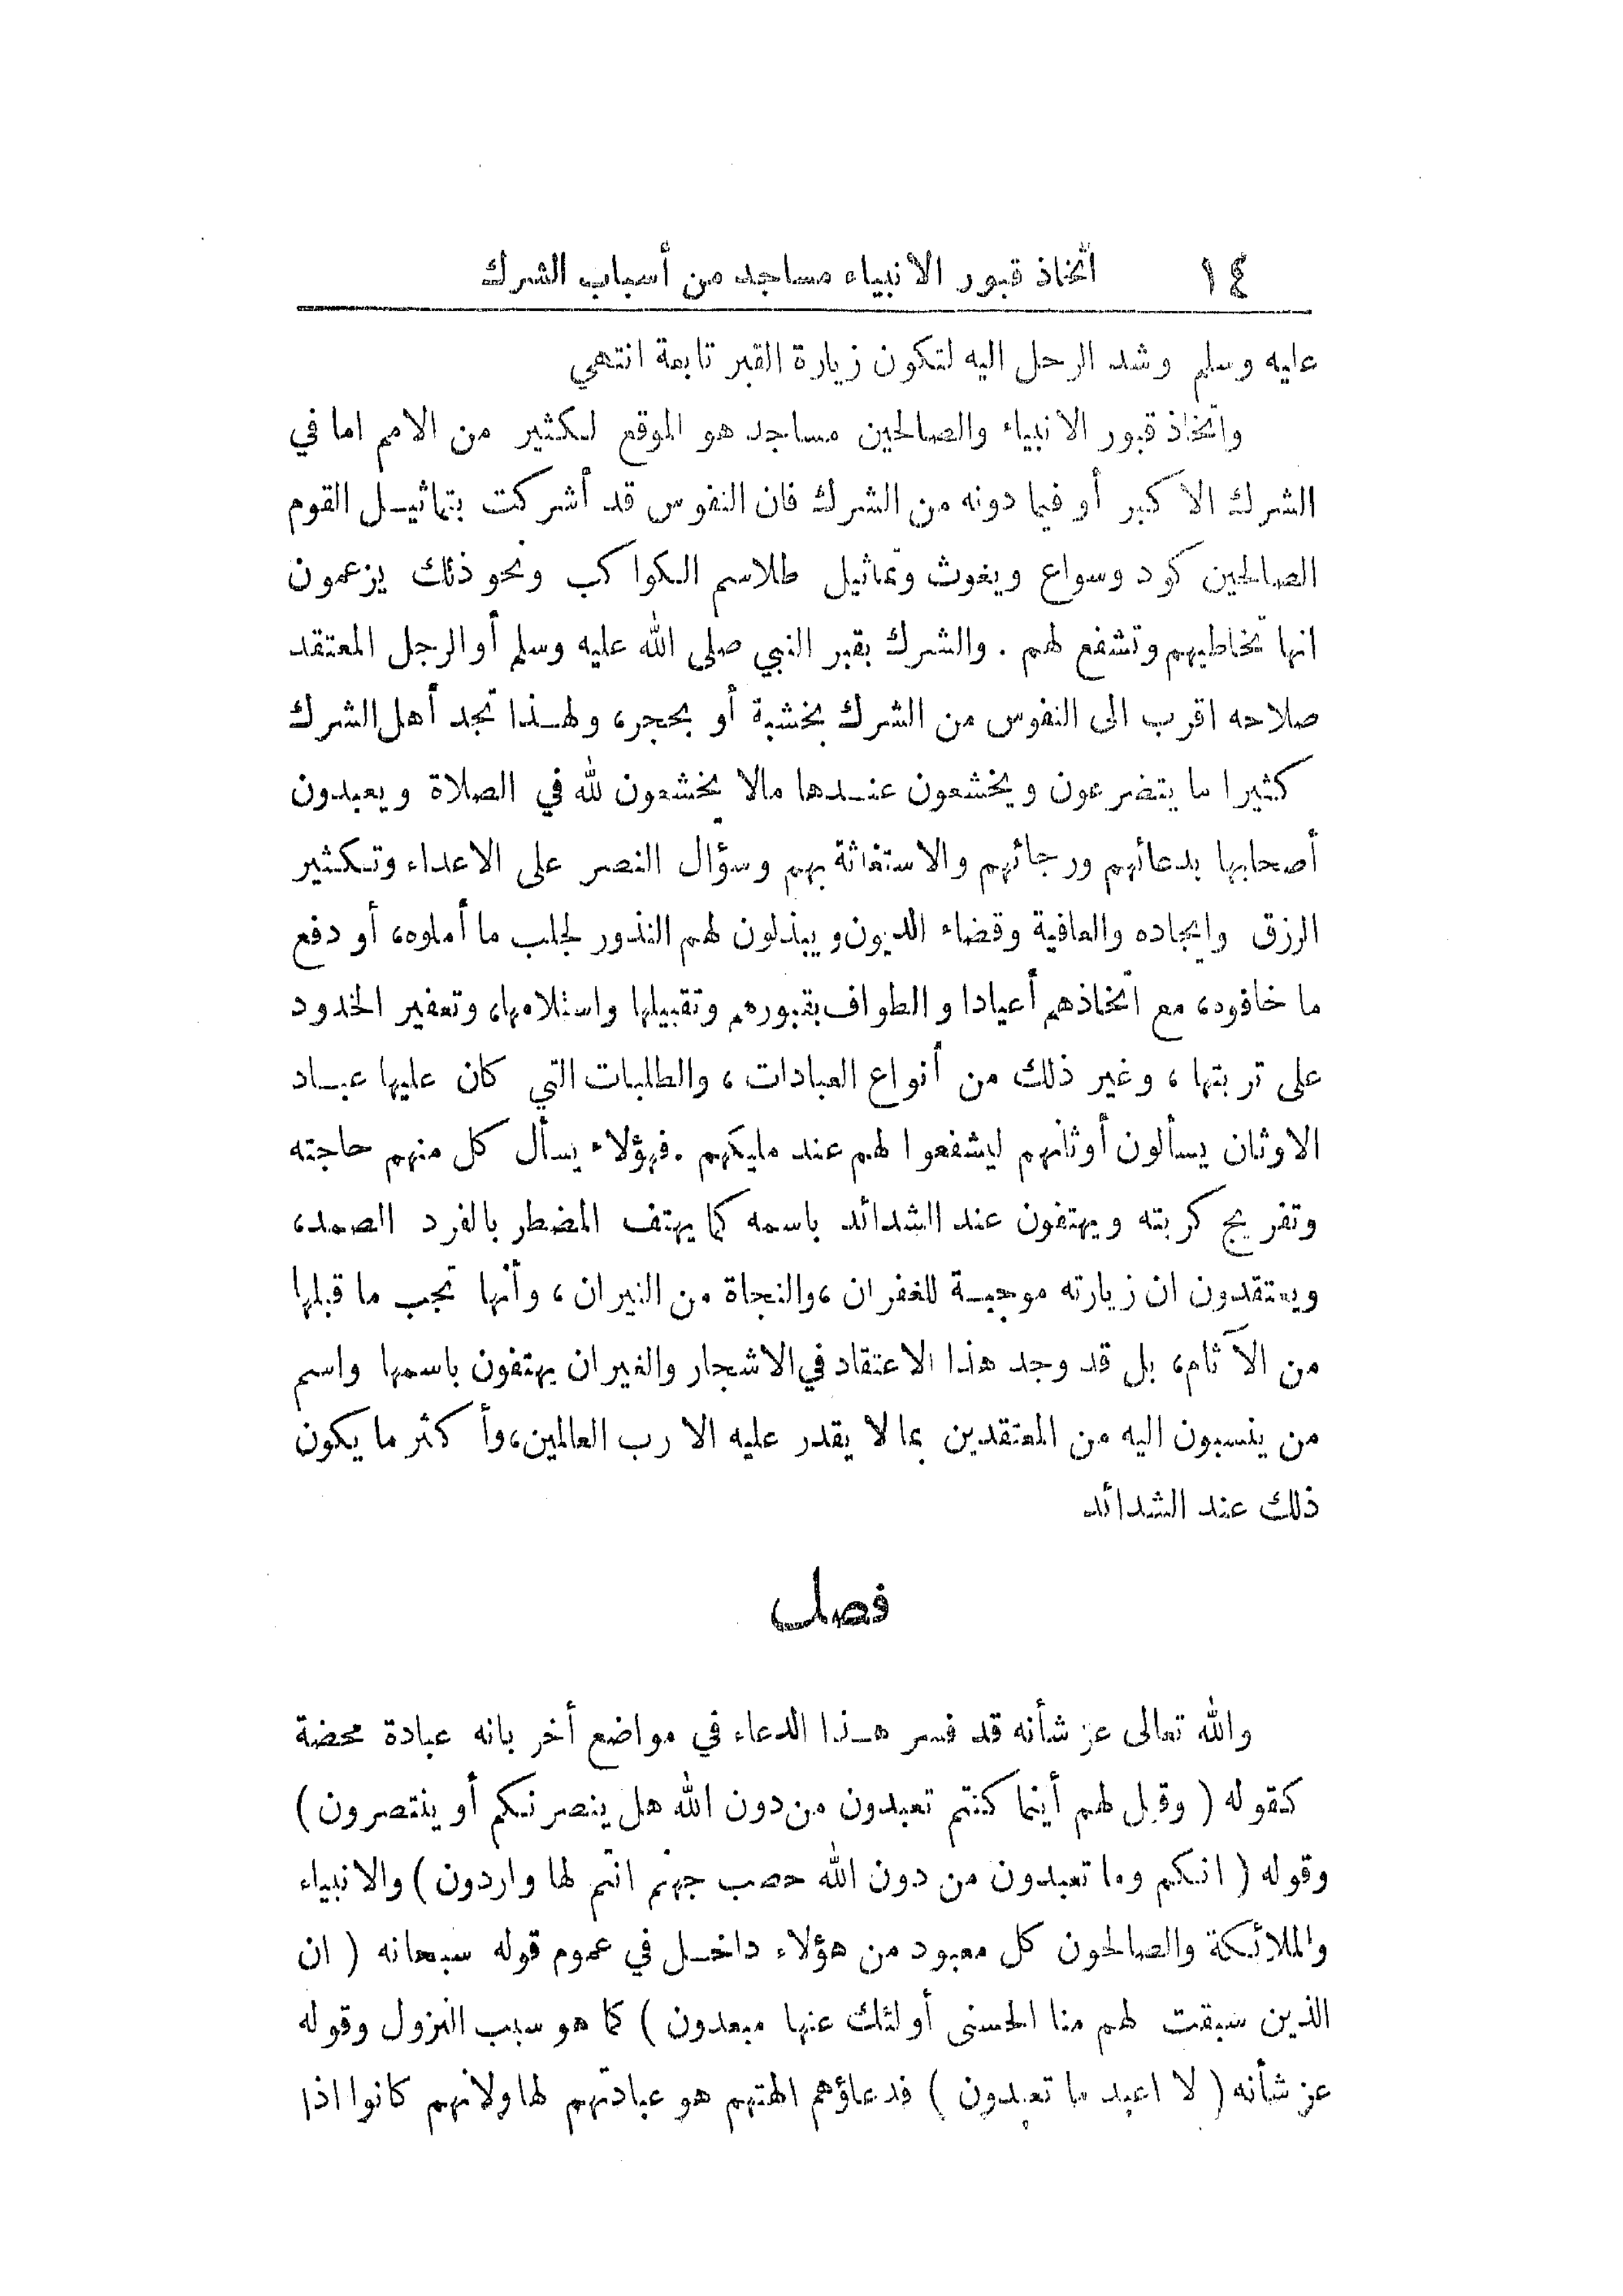 ١٤ اتخاذ قبور الانبياء مساجد من أسباب الشرك
عليه وسلم وشد الرحل اليه لتكون زيارة القبر تابعة انتهى
واتخاذ قبور الانبياء والصالحين مساجد هو الموقع لكثير من الامم اما في
الشرك الاكبر أو فيما دونه من الشرك فان النفوس قد أشركت بتماثيل القوم
الصالحين كود وسواع ويغوث وتماثيل طلاسم الكواكب ونحو ذلك يزعمون
انها تخاطبهم وتشفع لهم . والشرك بقبر النبي صلى الله عليه وسلم أو الرجل المعتقد
صلاحه اقرب الى النفوس من الشرك بخشبة أو بحجر، ولهذا تجد أهل الشرك
كثيرا ما يتضرعون ويخشعون عندها مالا يخشعون لله في الصلاة ويعبدون
أصحابها بدعائهم ورجائهم والاستغاثة بهم وسؤال النصر على الاعداء وتكثير
الرزق وايجاده والعافية وقضاء الديون ويبذلون لهم النذور لجلب ما أملوه، أو دفع
ما خافوه، مع اتخاذهم أعيادا والطواف بقبورهم وتقبيلها واستلامها، وتعفير الخدود
على تربتها ، وغير ذلك من أنواع العبادات ، والطلبات التي كان عليها عباد
الاوثان يسألون أوثانهم ليشفعوا لهم عند مليكهم . فهؤلاء يسأل كل منهم حاجته
وتفريج كربته ويهتفون عند الشدائد باسمه كما يهتف المضطر بالفرد الصمد،
ويعتقدون ان زيارته موجبة للغفران ، والنجاة من النيران ، وأنها تجب ما قبلها
من الآثام، بل قد وجد هذا الاعتقاد في الاشجار والغيران يهتفون باسمها واسم
من ينسبون اليه من المعتقدين بما لا يقدر عليه الا رب العالمين، وأكثر ما يكون
ذلك عند الشدائد
فصل
والله تعالى عز شأنه قد فسر هذا الدعاء في مواضع أخر بانه عبادة محضة
كقوله ( وقيل لهم أينما كنتم تعبدون من دون الله هل ينصرنكم أو ينتصرون )
وقوله ( انكم وما تعبدون من دون الله حصب جهنم انتم لها واردون ) والانبياء
والملائكة والصالحون كل معبود من هؤلاء داخل في عموم قوله سبحانه ( ان
الذين سبقت لهم منا الحسنى أولئك عنها مبعدون ) كما هو سبب النزول وقوله
عز شأنه ( لا اعبد ما تعبدون ) فدعاؤهم الهتهم هو عبادتهم لها ولانهم كانوا اذا